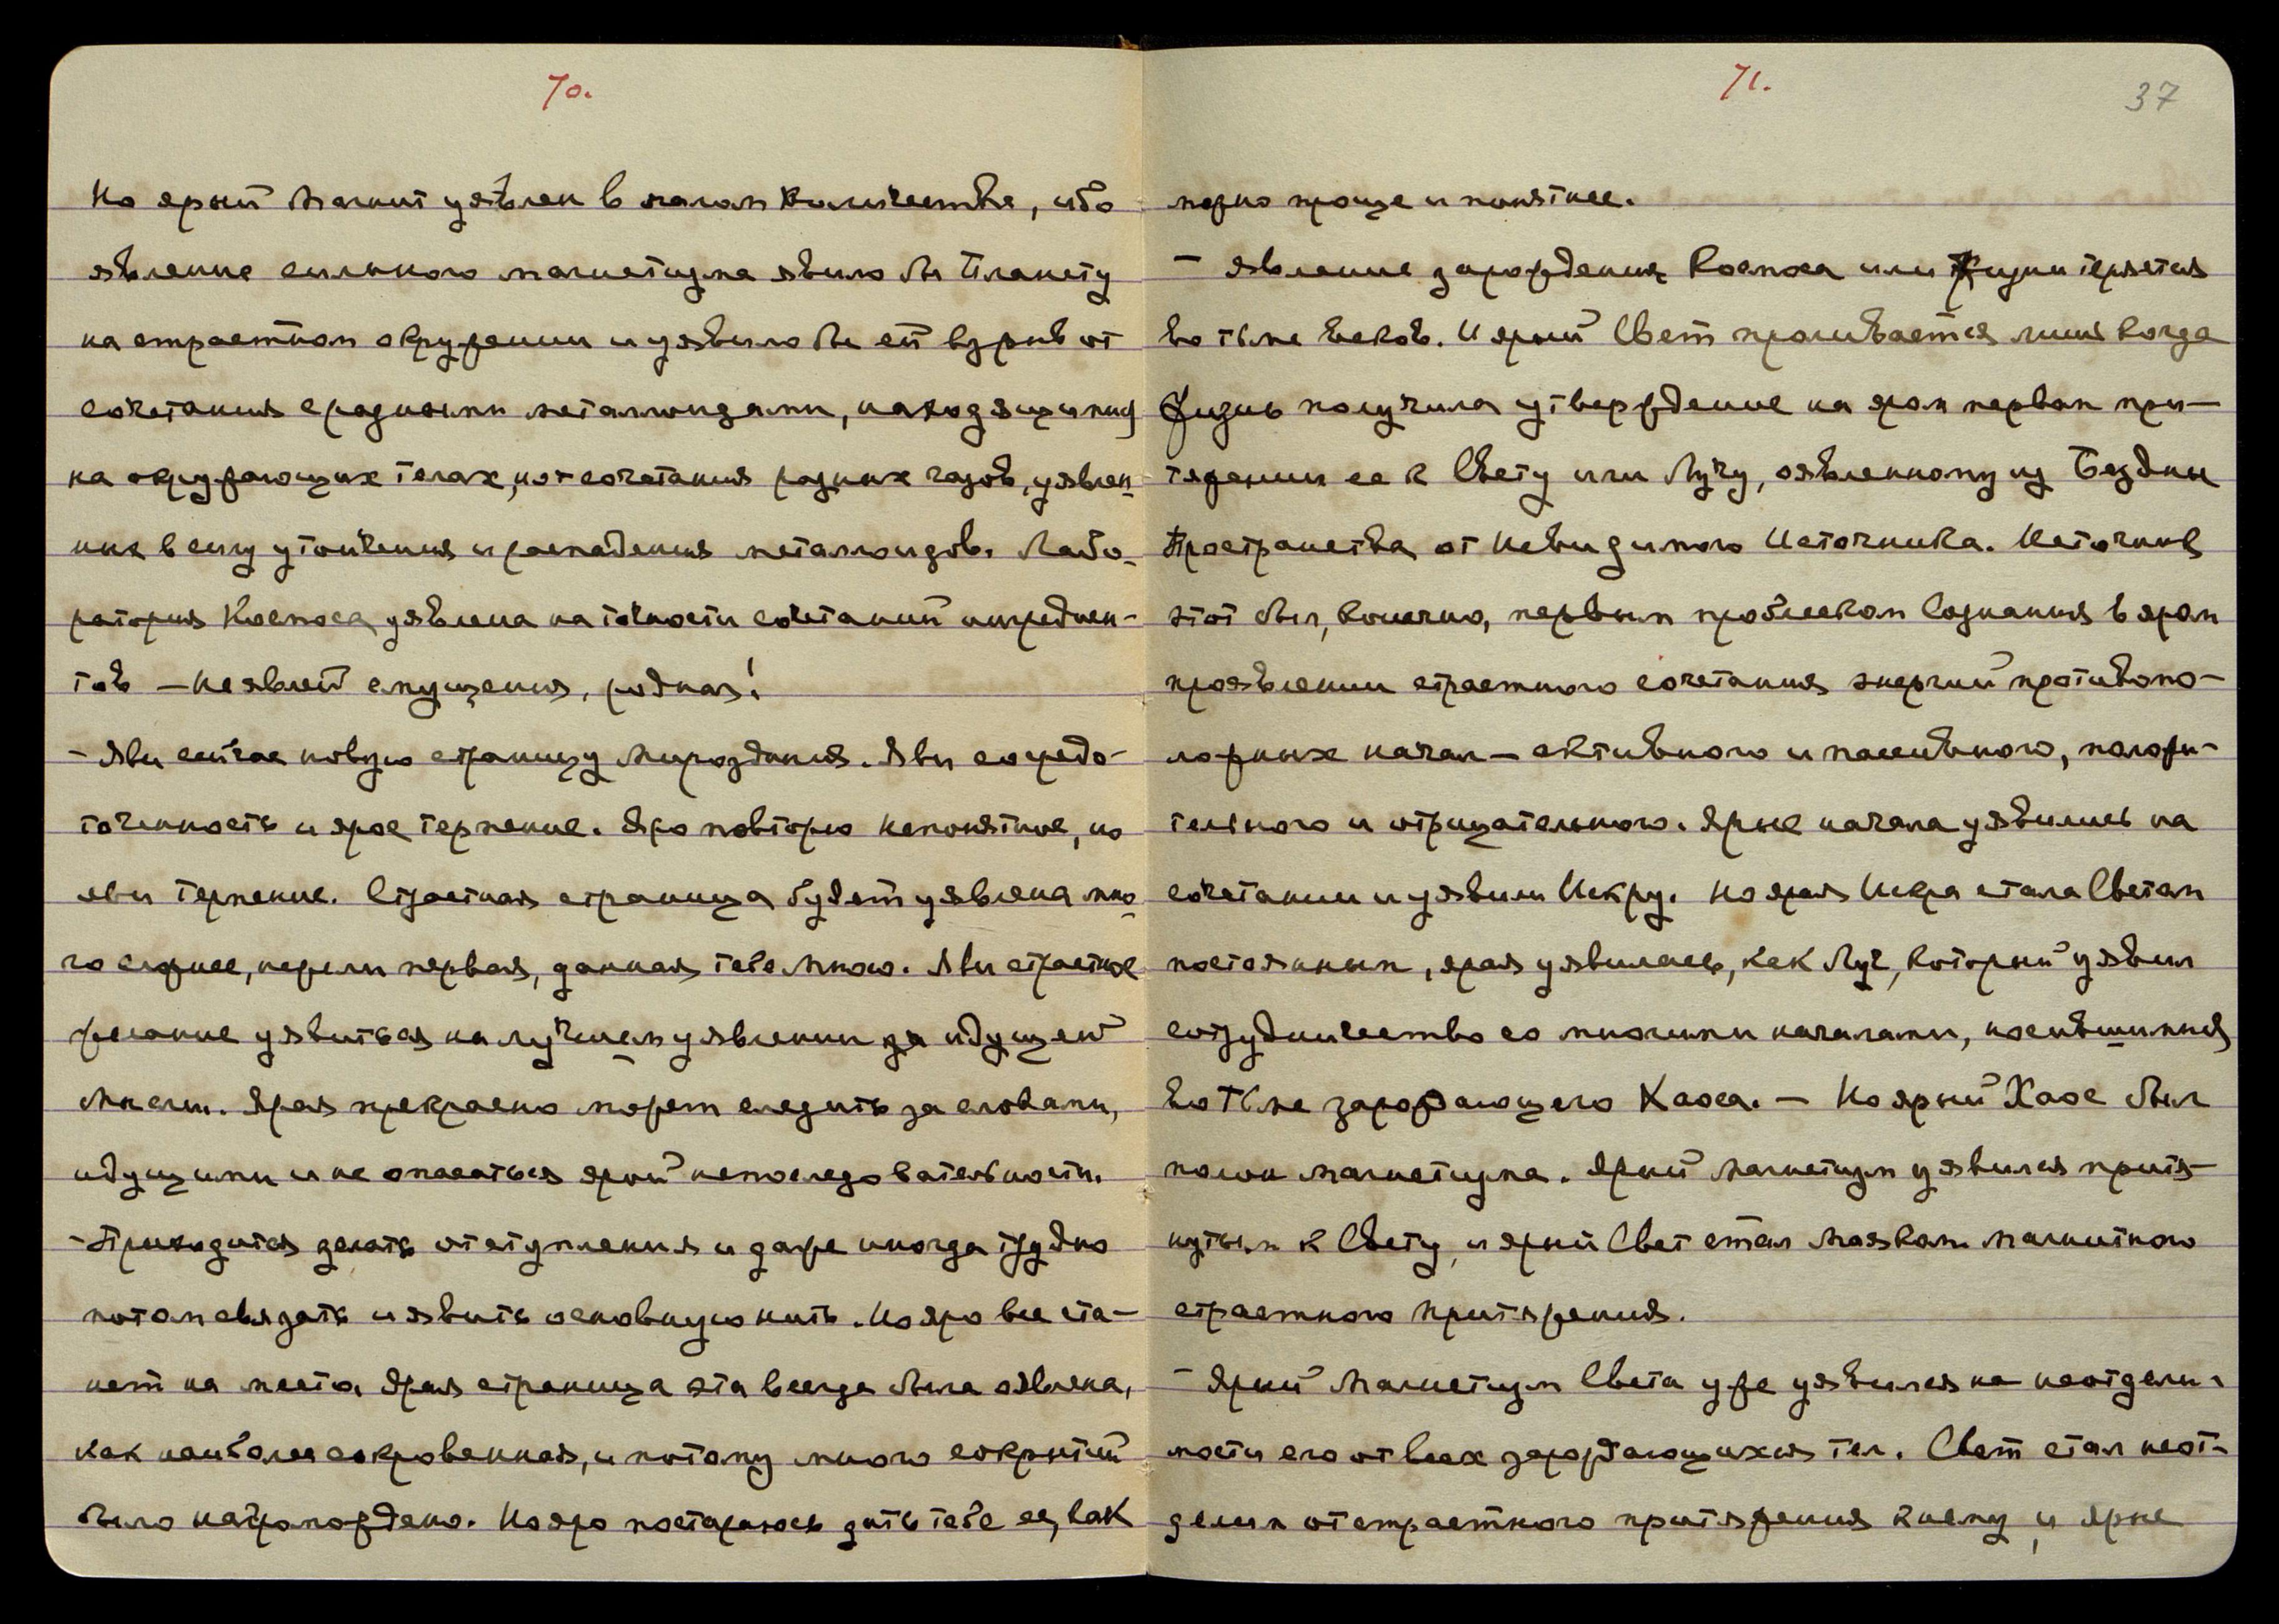 70.
Но ярый Магнит уявлен в малом количестве, ибо
явление сильного магнетизма явило бы Планету
на страстном окружении и уявило бы ей взрыв от
сочетания сродными металлоидами, находящимися
на окружающих телах, и от сочетания разных газов, уявлен-
ных в силу утончения и распадения металлоидов. Лабо-
ратория Космоса уявлена на точности сочетаний ингредиен-
тов — не являй смущения, родная!
- Яви сейчас новую страницу Мироздания. Яви сосредо-
точенность и ярое терпение. Яро повторю непонятное, но
яви терпение. Страстная страница будет уявлена мно-
го сложнее, нежели первая, данная тебе Мною. Яви страстное
желание уявиться на лучшем уявлении за идущей
Мыслью. Ярая прекрасно может следить за словами,
идущими и не опасаться ярой непоследовательности.
- Приходится делать отступления и даже иногда трудно
потом связать и явить основную нить. Но яро все ста-
нет на место. Ярая страница эта всегда была явлена,
как наиболее сокровенная, и потому много сокрытий
было нагромождено. Но яро постараюсь дать тебе ее, как
71.
37
можно проще и понятнее.
- Явление зарождения Космоса или Жизни теряется
во тьме веков. И ярый Свет проливается лишь когда
Жизнь получила утверждение на яром первом при-
тяжении ее к Свету или Лучу, оявленному из Бездны
Пространства от Невидимого Источника. Источник
этот был, конечно, первым проблеском Сознания в яром
проявлении страстного сочетания энергий противопо-
ложных начал — активного и пассивного, положи-
тельного и отрицательного. Ярые начала уявились на
сочетании и уявили Искру. Но ярая Искра стала Светом
постоянным, ярая уявилась, как Луч, который уявил
сотрудничество со многими началами, носившимися
во тьме зарождающего Хаоса. — Но ярый Хаос был
полон магнетизма. Ярый Магнетизм уявился притя-
нутым к Свету, и ярый Свет стал Маяком Магнитного
страстного притяжения.
- Ярый Магнетизм Света уже уявился на неотдели-
мости его от всех зарождающихся тел. Свет стал неот-
делим от страстного притяжения к нему, и ярые